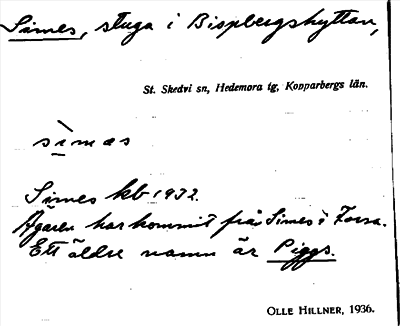 Simes, stuga i Bispbergshyttan,
St. Skedvi sn, Hedemora tg, Kopparbergs län.
sìmæs
Simes kb 1932.
Ägaren har kommit från Simes i Torsa.
Ett äldre namn är Piggs.
OLLE HILLNER, 1936.